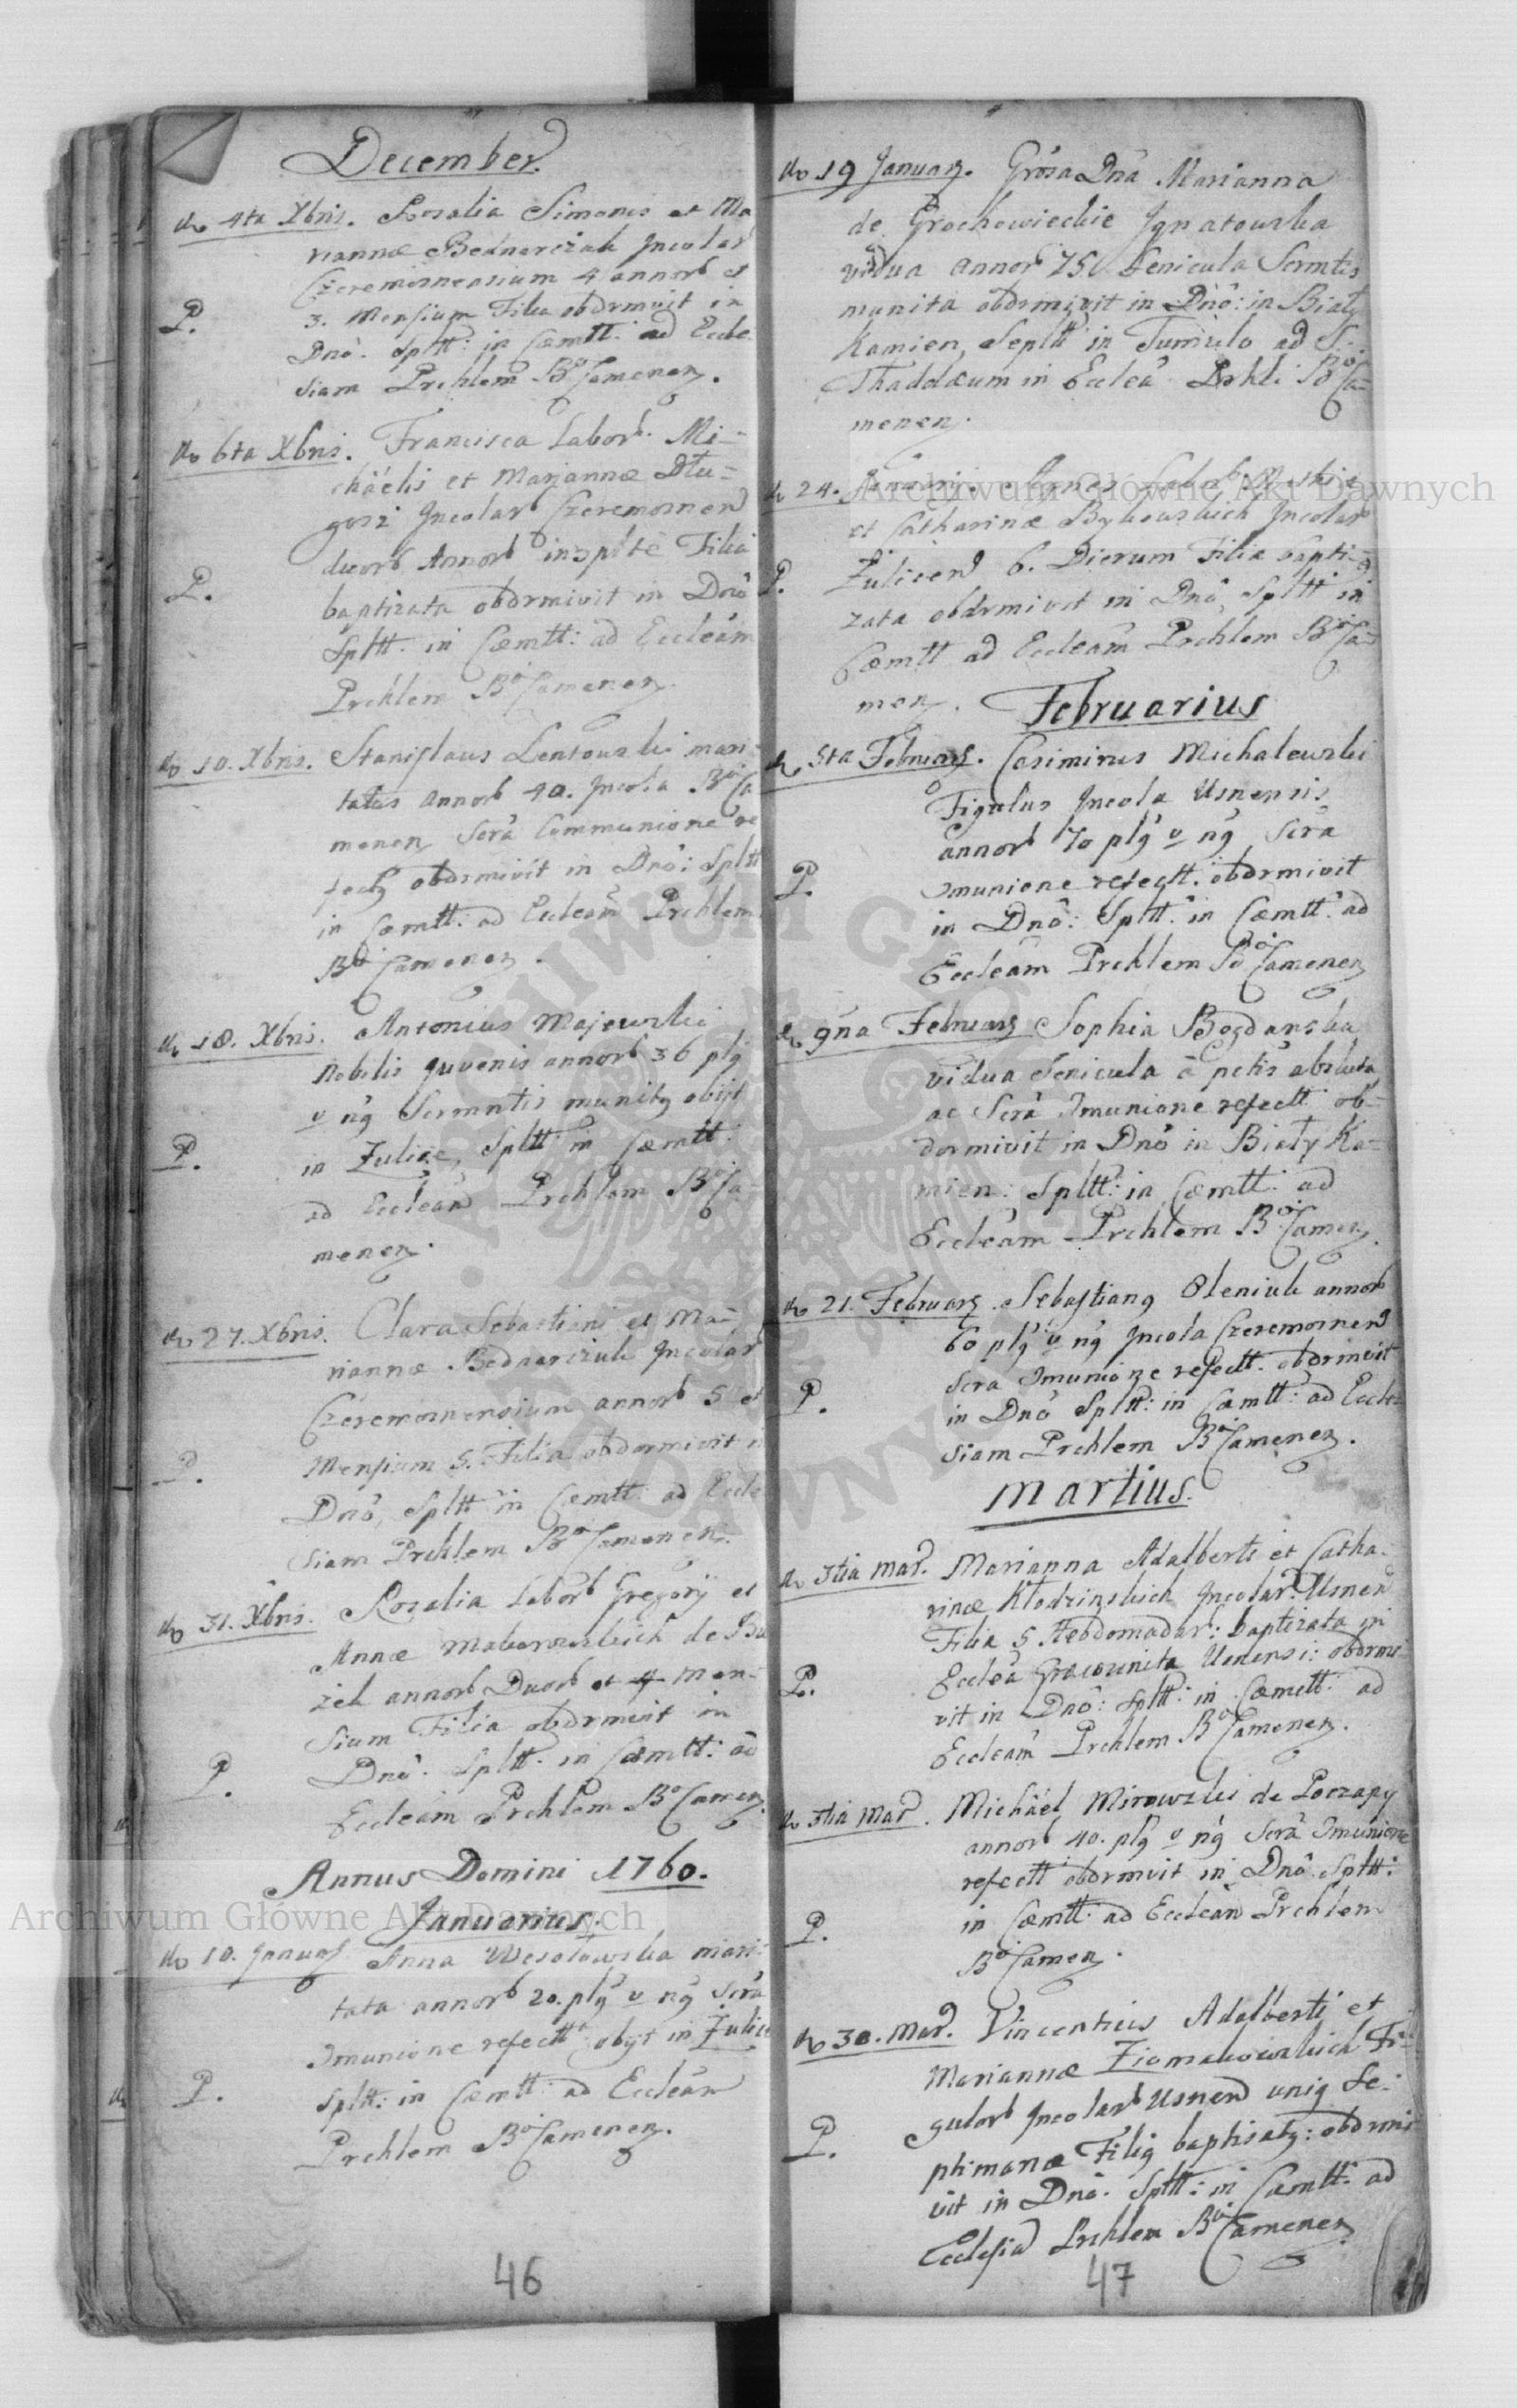 December.
do 4ta Xbris. Rosalia Simonis et Ma
riannæ Bednarczak Incolar
Czeremosnensium 4 annorb et
3. Mensium Filia obdrmivit in
P.
Dnô. Spltt: in Cæmtt: ad Eccle
siam Prchlem Bo Camenen.
do 6ta Xbris. Francisca Labor. Mi-
chäelis et Marjannæ Dłu-
gosz Incolarb Czeremosnen
duorb Annorb inspltè Filia
P.
baptizata obdrmivit in Dnô
Spltt. in Cæmtt: ad Eccleâm
Prchlem Bo Camenen.
do 10. Xbris. Stanislaus Lentowski mari-
tatus annorb 40. Incola Bo Ca
menen Scrâ Communione re
fectg obdrmivit in Dnô: Spltt
in Cæmtt: ad Eccleâm Prchlem
Bo Camenen.
do 18. Xbris. Antonius Majewski
Nobilis Juvenis annorb 36 plg
v ng Scrmntis munitg obijt
P.
in Zulice, Spltt in Cæmtt:
ad Eccleâm Prchlem Bo Ca-
menen.
do 27. Xbris. Clara Sebastiani et Ma-
riannæ Bednarczuk Incolar
Czeremosnensium annorb 5 et
P.
Mensium 5. Filia obdormivit in
Dnô, Spltt in Cæmtt: ad Eccle
siam Prchlem Bo Camenen.
do 31. Xbris. Rosalia Labor Gregorij et
Annæ Makarewskich de Bu
żek annorb Duorb et 4 Men-
sium Filia obdrmivit in
P.
Dnô. Spltt. in Cæmtt: ad
Eccleâm Prchlem Bo Camen.
Annus Domini 1760.
Januarius.
do 10. Januar Anna Wesołowska mari-
tata annorb 20. plg v ng Scrâ
Imunione refectt obijt in Zulice
P.
Spltt: in Cæmtt: ad Eccleâm
Prchlem Bo Camenen.
46
do 19 Januar. Grôsa Dnâ Marianna
de Grochowieckie Ignatowska
vidua annor 75. Senicula Scrmtis
munita obdrmivit in Dnô: in Biały
Kamien, Sepltt in Tumulo ad S:
Thaddæum in Eccleâ Prkli Bo Ca-
menen.
do 24. Januarij. Agnes
et Catharinæ Bykowskich Incolar
P.
Zulicen 6. Dierum Filia bapti-
zata obdrmivit in Dnô, Spltt in
Cæmtt ad Eccleâm Prchlem Bo Ca-
men.
Februarius
do 5ta Februar. Casimirus Michalewski
Figulus Incola Usnensis
annorb 70 plg v ng Scrâ
P.
Imunione refectt. obdrmivit
in Dnô: Spltt. in Cæmtt: ad
Eccleâm Prchlem Bo Camenen
do 9na Februar Sophia Bogdanska
vidua Senicula à pctis absluta
ac Scrâ Imunione refectt ob-
dormivit in Dnô in Biały Ka-
mien: Spltt: in Cæmtt: ad
Eccleâm Prchlem Bo Camen.
do 21. Februar. Sebastiang Oleniuk annorb
60 plg v ng Incola Czeremosnen
Scra Imunione refectt. obdrmivit
P.
in Dnô Spltt: in Cæmtt: ad Eccle-
siam Prchlem Bo Camenen.
Martius.
do 3tia Mar. Marianna Adalberti et Catha-
rinæ Kłodzinskich Incolar. Usnen
Filia 5 Hebdomadar: baptizata in
P.
Eccleâ Græcounita Usnensi: obdrmi
vit in Dnô: Spltt: in Cæmtt: ad
Eccleâm Prchlem Bo Camenen.
do 3tia Mar. Michäel Mirowski de Poczapy
annorb 40. plg v ng Scrâ Imunione
refectt obdrmivit in Dnô Spltt:
P.
in Cæmtt: ad Eccleâm Prchlem
Bo Camen.
do 30. Mar. Vincentius Adalberti et
Mariannæ Ziomakowskich Fi-
gulorb Incolarb Usnen unig Se-
P.
ptimanæ Filig baptisatg: obdrmi
vit in Dnô. Spltt: in Cæmtt: ad
Ecclesia Prchlem Bo Camenen
47
Archiwum Główne Akt Dawnych
Archiwum Główne Akt Dawnych